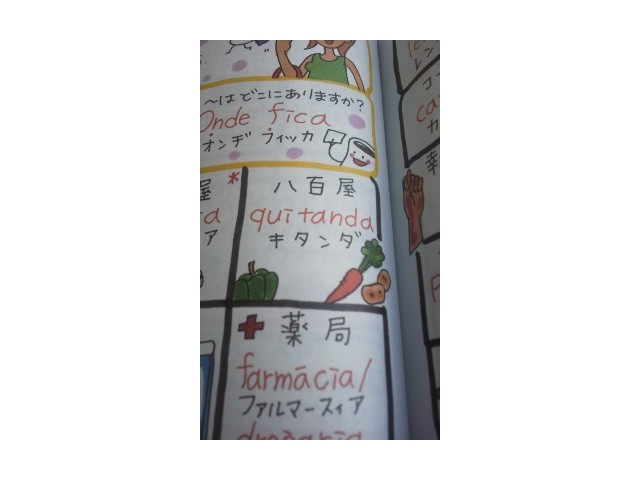 ～はどこにありますか?
Onde fica
オンヂ フィッカ
屋 *
八百屋
quitanda
キタンダ
ア
薬局
farmācia/
ファルマースィア
drogaria
レン
コー
ca
カ